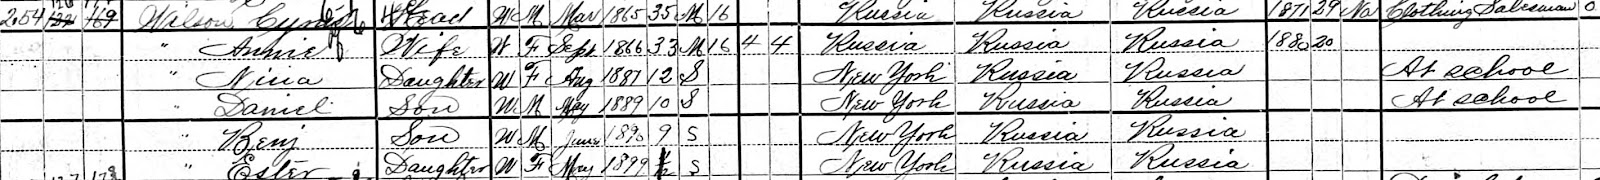 2054 169 Wilson Head W M Mar 1865 35 M 16 Russia Russia Russia 1871 29 Na Clothing Salesman 0
" Annie Wife W F Sept 1866 33 M 16 4 4 Russia Russia Russia 1880 20
" Nina Daughter W F Aug 1887 12 S New York Russia Russia At school
" Daniel Son W M May 1889 10 S New York Russia Russia At school
" Benj Son W M June 1890 9 S New York Russia Russia
" Ester Daughter W F May 1899 S New York Russia Russia